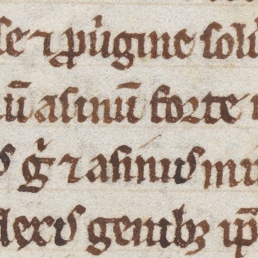 se ⁊ p̱ũgine solũ
ũ asinũ forte
s g̃ ⁊ asinus mi
lexus gentibꝫ ip̃